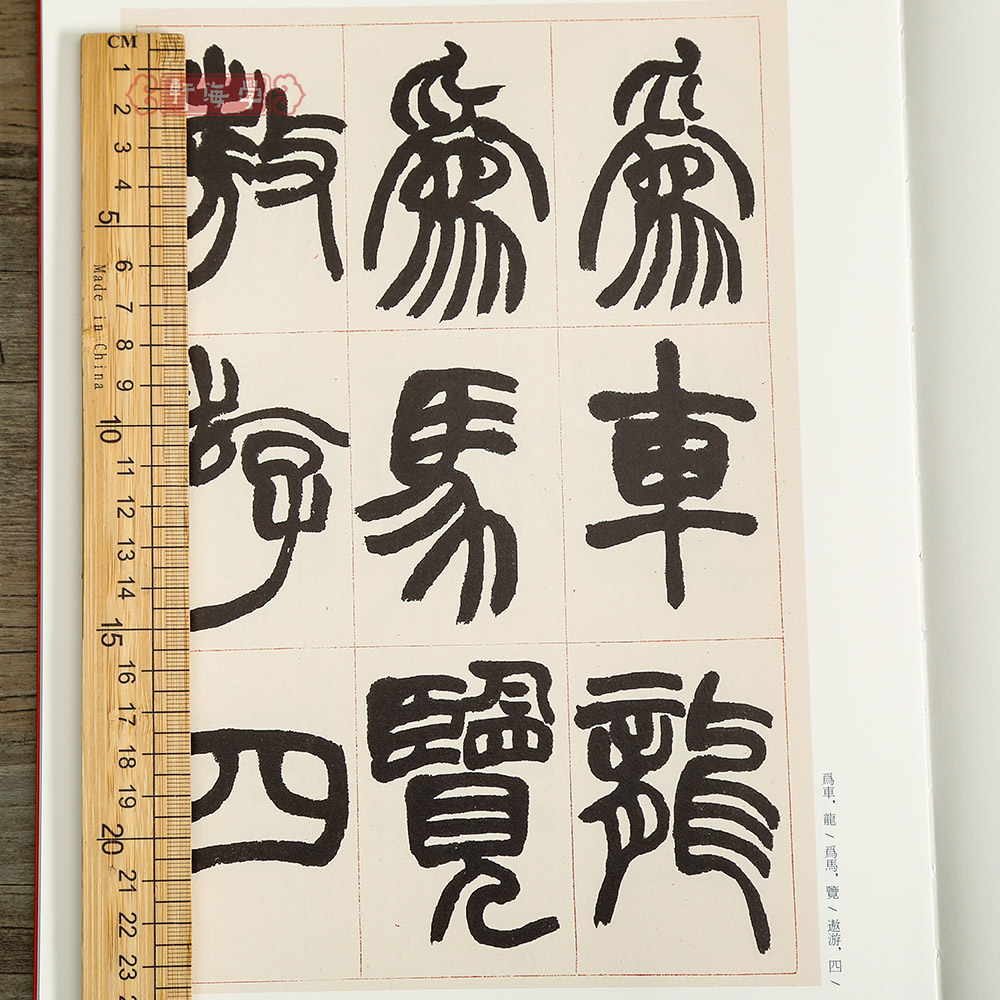 爲車龍
爲馬覽
敖游四
爲車，龍 / 爲馬，覽 / 遨游，四 /
軒海學
CM
1
2
3
4
5
6
7
8
9
10
11
12
13
14
15
16
17
18
19
20
21
22
23
Made in China